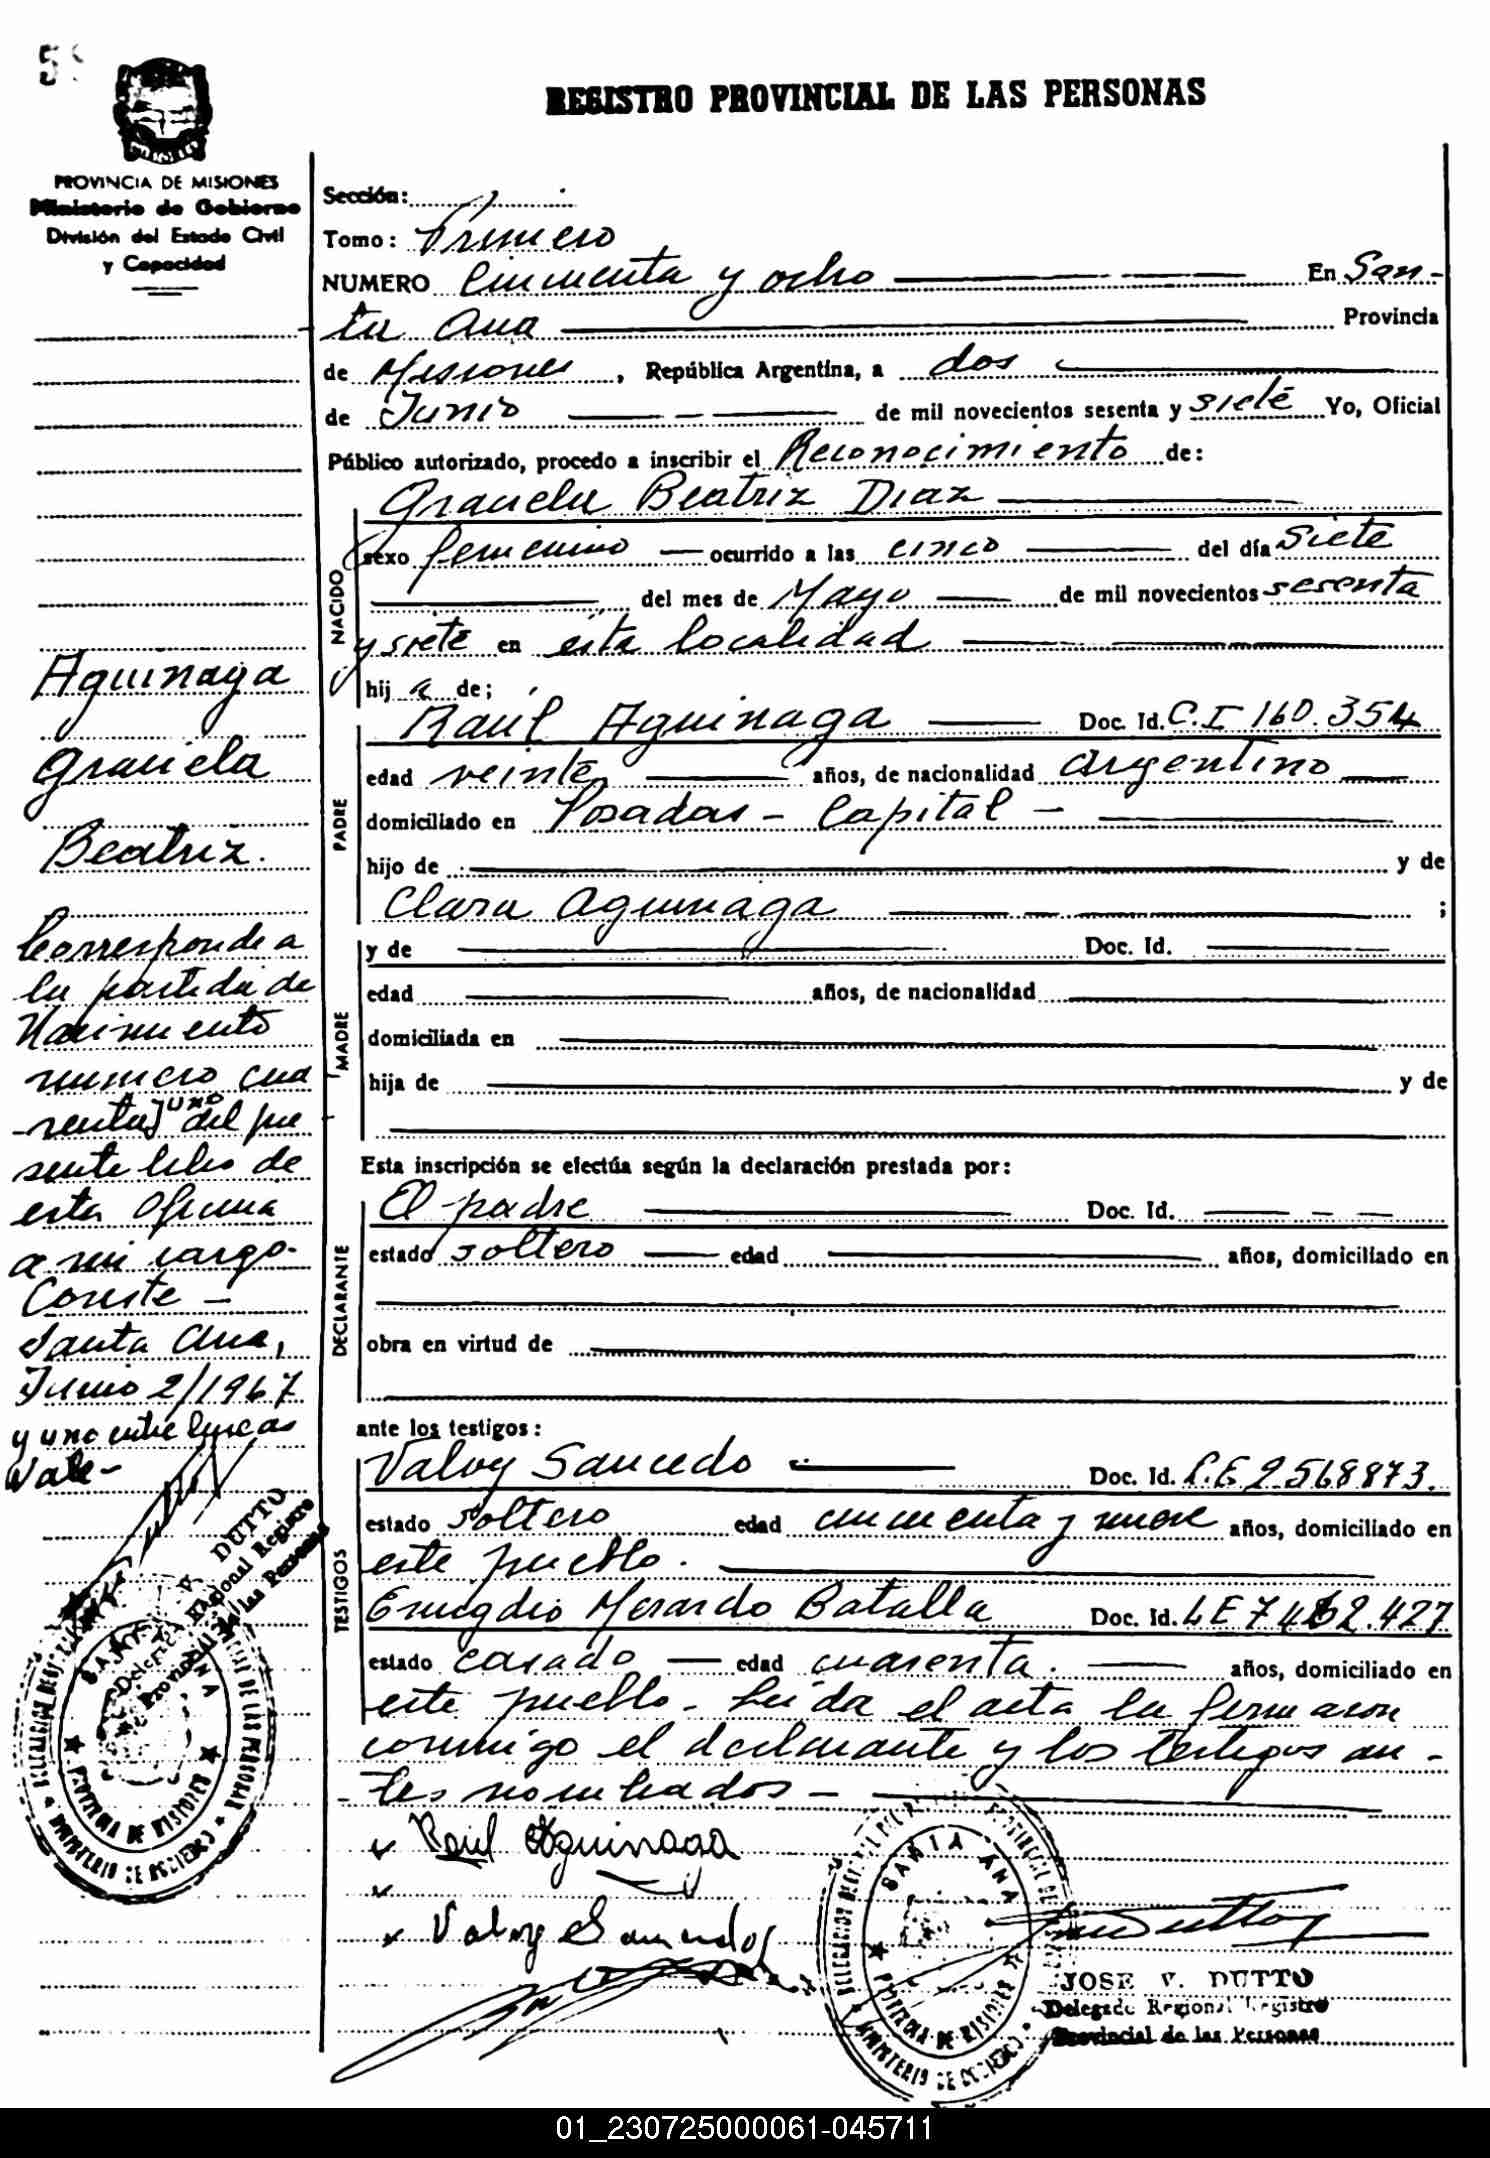 58
REGISTRO PROVINCIAL DE LAS PERSONAS
PROVINCIA DE MISIONES
Ministerio de Gobierno
División del Estado Civil
y Capacidad
Sección:
Tomo: Primero
NUMERO Cincuenta y ocho En San-
ta Ana Provincia
de Misiones, República Argentina, a dos
de Junio de mil novecientos sesenta y siete Yo, Oficial
Público autorizado, procedo a inscribir el Reconocimiento de:
Graciela Beatriz Diaz
NACIDO
sexo femenino ocurrido a las cinco del día siete
del mes de Mayo de mil novecientos sesenta
y siete en esta localidad
hij a de;
PADRE
Raúl Aguinaga Doc. Id. C.I 160.354
edad veinte años, de nacionalidad argentino
domiciliado en Posadas - Capital -
hijo de y de
Clara Aguinaga ;
MADRE
y de Doc. Id.
edad años, de nacionalidad
domiciliada en
hija de y de
Esta inscripción se efectúa según la declaración prestada por:
DECLARANTE
El padre Doc. Id.
estado soltero edad años, domiciliado en
obra en virtud de
ante los testigos:
TESTIGOS
Valoy Saucedo Doc. Id. L.E 2568873.
estado soltero edad cincuenta y nueve años, domiciliado en
este pueblo.
Emegdio Merardo Batalla Doc. Id. LE 7462.427
estado casado edad cuarenta. años, domiciliado en
este pueblo - Leída el acta la firmaron
conmigo el declarante y los testigos an-
tes nombrados -
Raúl Aguinaga
Valoy Saucedo
JOSE V. DUTTO
Delegado Regional Registro
Provincial de las Personas
SANTA ANA
PROVINCIA DE MISIONES
MINISTERIO DE GOBIERNO
Aguinaga
Graciela
Beatriz.
Corresponde a
la partida de
Nacimiento
numero cua
renta y uno del pre
sente libro de
esta Oficina
a mi cargo.
Conste -
Santa Ana,
Junio 2/1967
y uno entre lineas
Vale -
V. DUTTO
Delegado Regional Registro
Provincial de las Personas
SANTA ANA
PROVINCIA DE MISIONES
MINISTERIO DE GOBIERNO
01_230725000061-045711